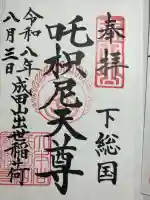 奉拝
下総国
吒枳尼天尊
成田山出世稲荷
令和八年
八月三日